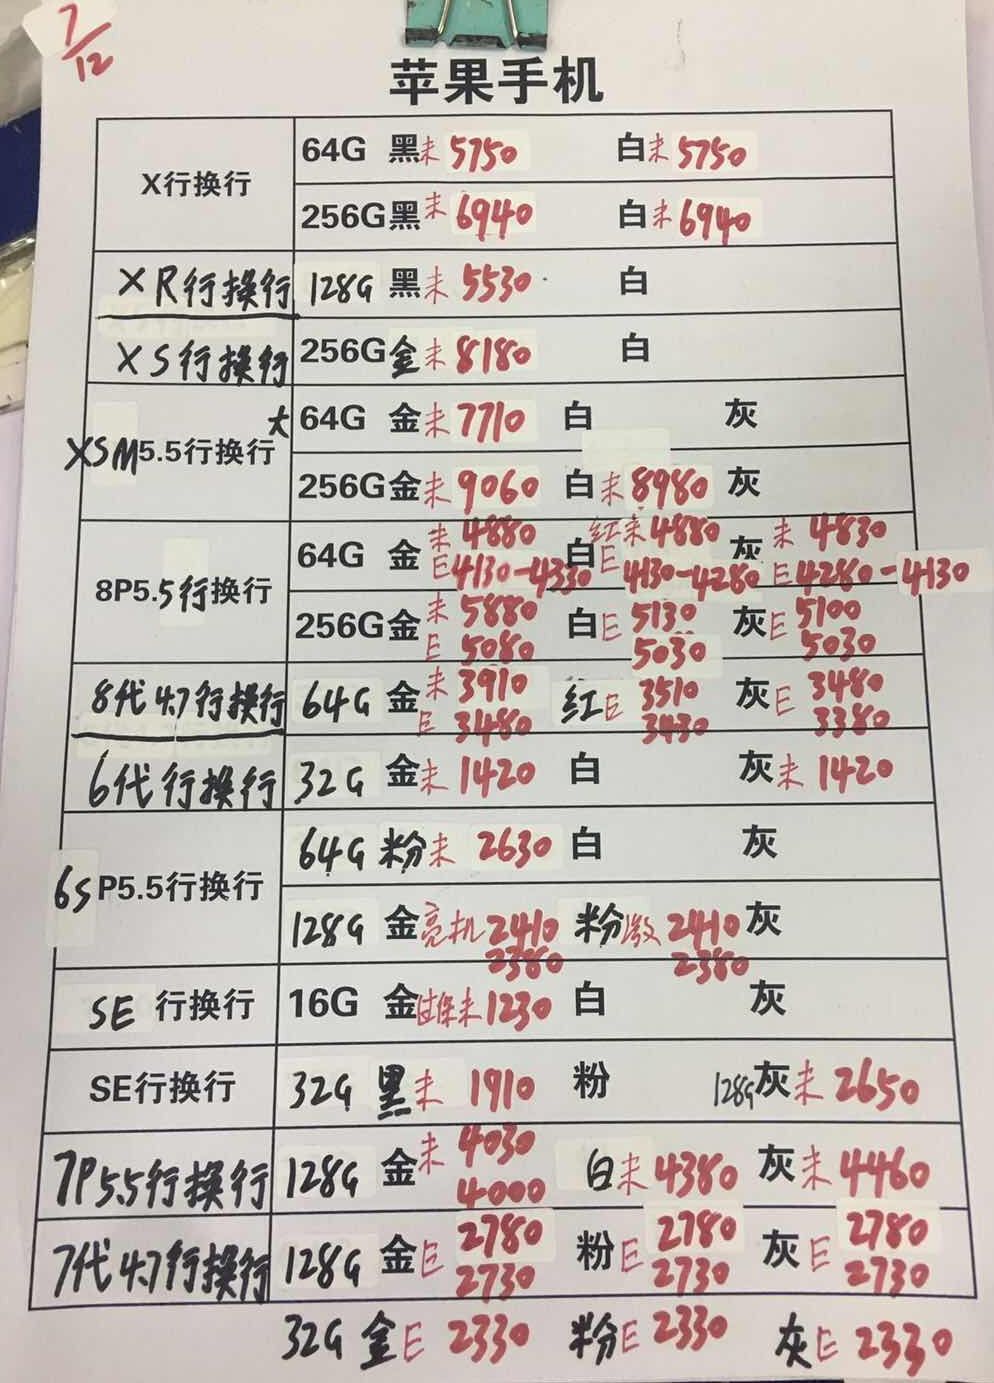 7/12
苹果手机
X行换行 64G 黑未5750 白未5750
256G黑未6940 白未6940
XR行换行 128G 黑未5530 白
XS行换行 256G金未8180 白
XSM5.5行换行 大 64G 金未7710 白 灰
256G金未9060 白未8980 灰
8P5.5行换行 64G 金未4880 白红未4880 灰未4830
E4130-4330 E4130-4280 E4280-4130
256G金未5880 白E5130 灰E5100
E5080 5030 5030
8代4.7行换行 64G 金未3910 红E3510 灰E3480
E3480 3430 3380
6代行换行 32G 金未1420 白 灰未1420
6SP5.5行换行 64G 粉未2630 白 灰
128G 金亮机2410 粉激2410 灰
2380 2380
SE行换行 16G 金过保未1230 白 灰
SE行换行 32G 黑未1910 粉 128G灰未2650
7P5.5行换行 128G 金未4030 白未4380 灰未4460
4000
7代4.7行换行 128G 金E2780 粉E2780 灰E2780
2730 2730 2730
32G 金E2330 粉E2330 灰E2330